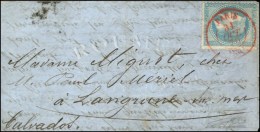 PARIS
Madame Mignot, chez
Mr Paul Meriel
à Langrune sur mer
Calvados.